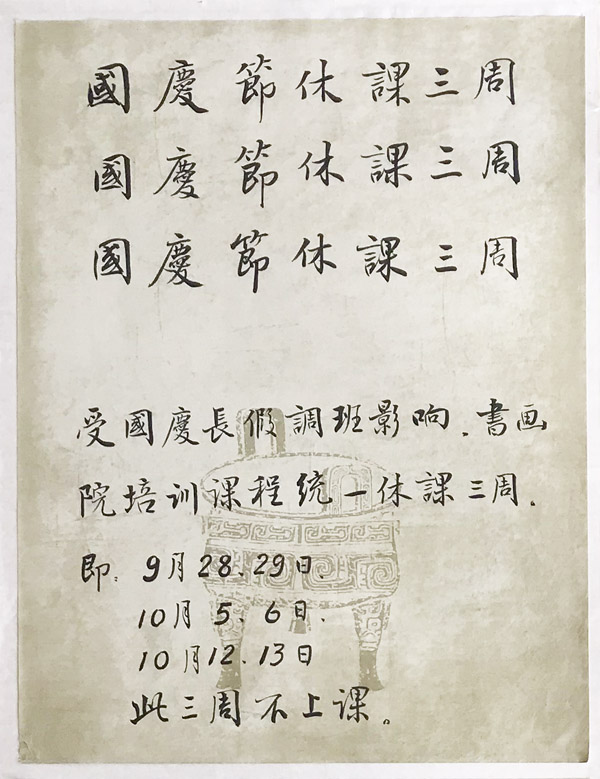 國慶節休課三周
國慶節休課三周
國慶節休課三周
受國慶長假調班影响,书画
院培训课程统一休課三周.
即:9月28、29日.
10月5、6日.
10月12、13日
此三周不上课。